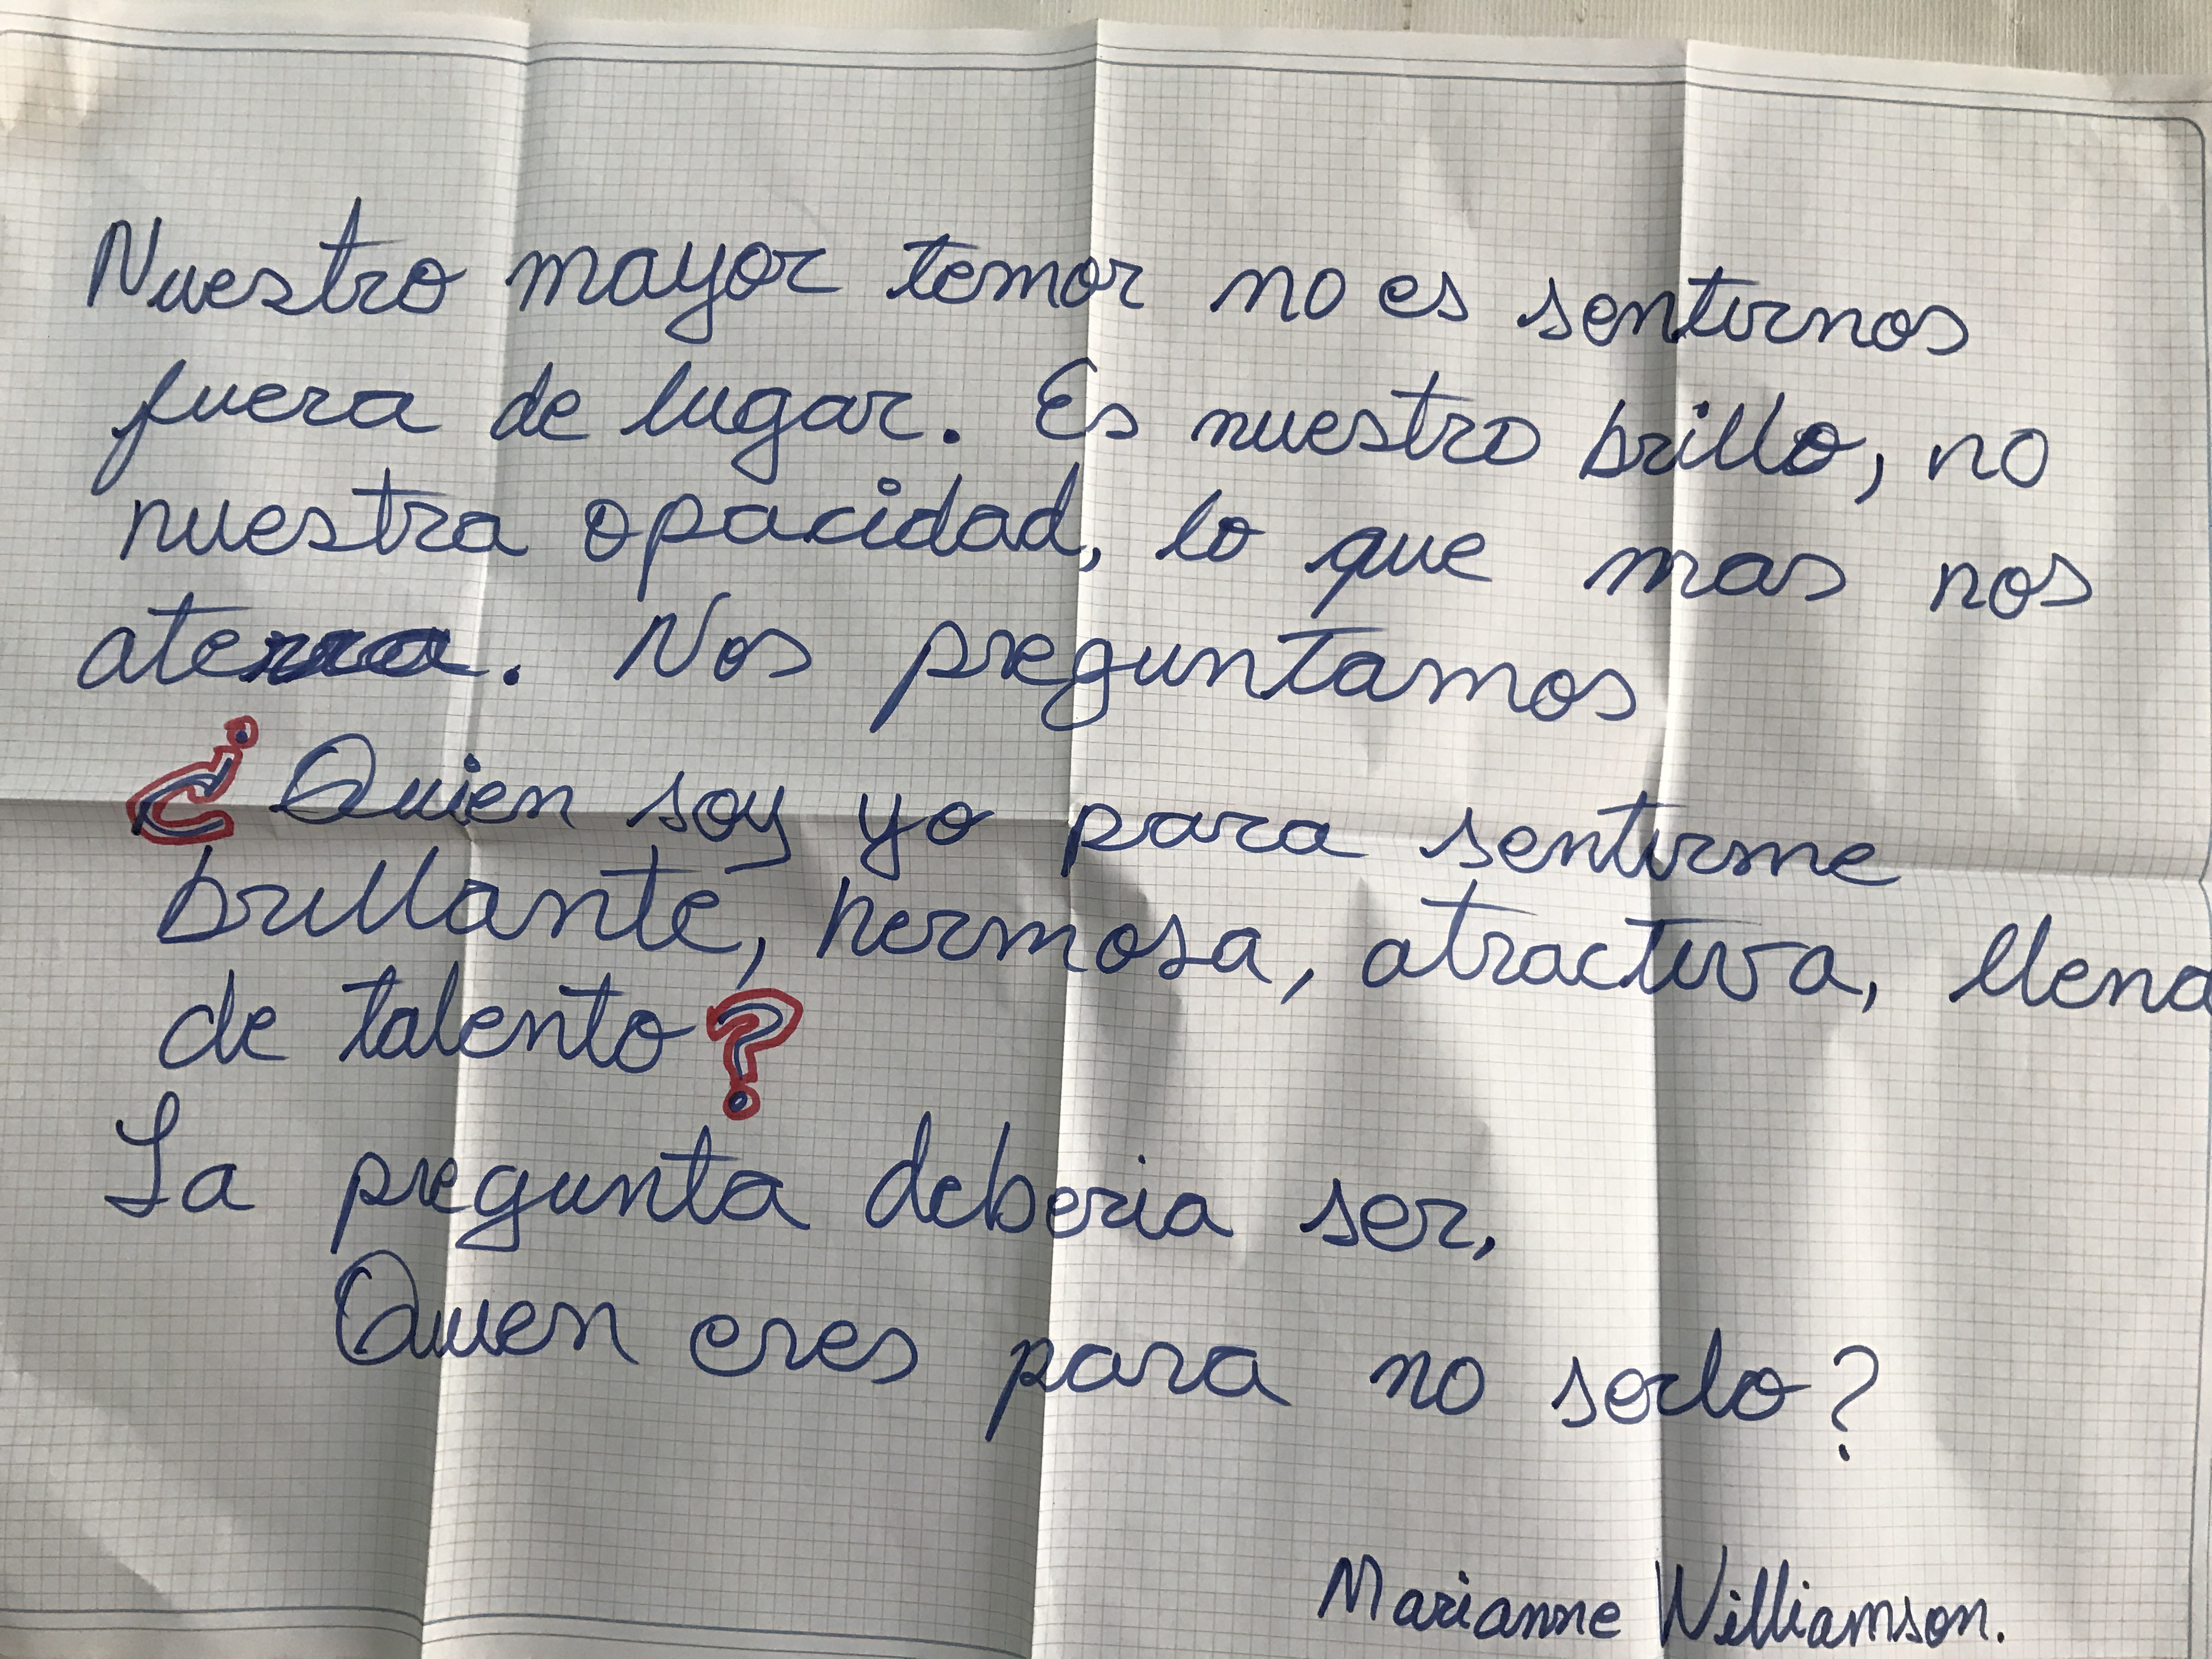 Nuestro mayor temor no es sentirnos
fuera de lugar. Es nuestro brillo, no
nuestra opacidad, lo que mas nos
aterra. Nos preguntamos
¿Quien soy yo para sentirme
brillante, hermosa, atractiva, llena
de talento?
La pregunta deberia ser,
Quien eres para no serlo?
Marianne Williamson.